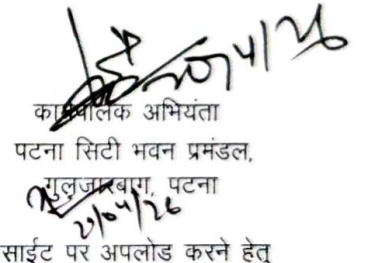 कार्यपालक अभियंता
पटना सिटी भवन प्रमंडल,
गुलजारबाग, पटना
साईट पर अपलोड करने हेतु